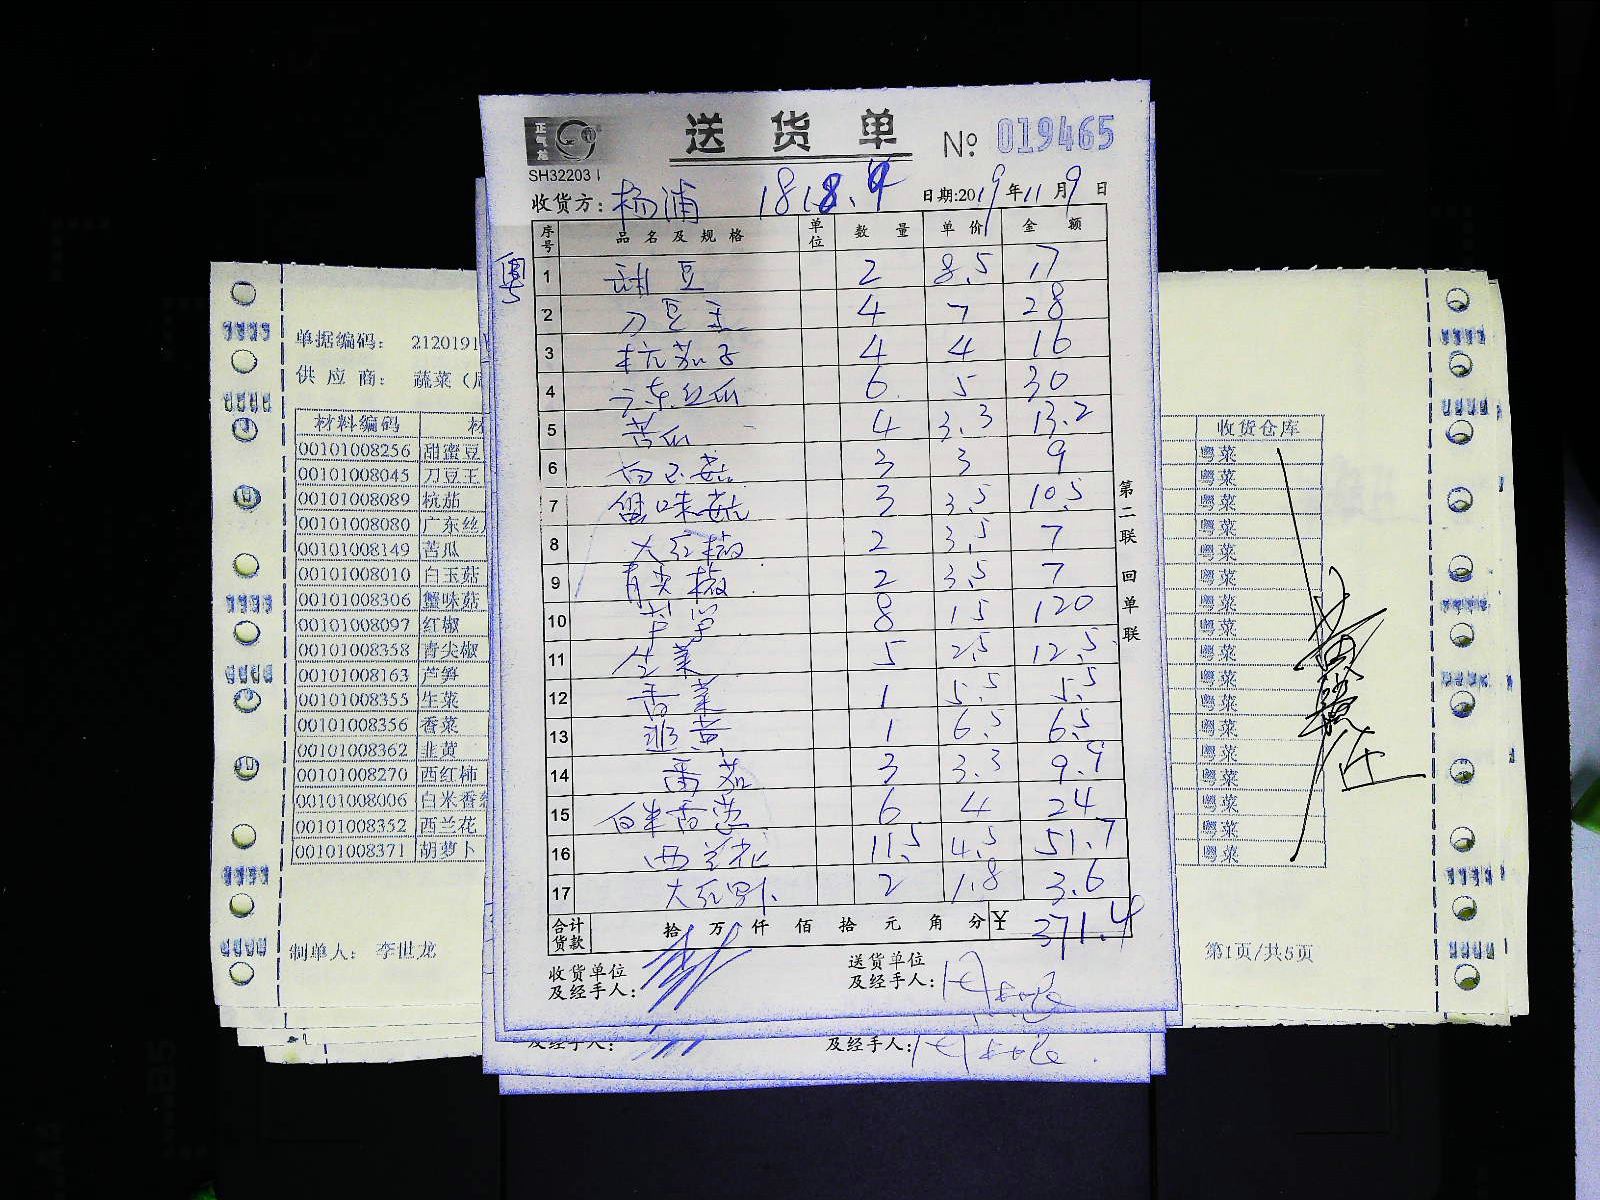 正气
送货单 № 019465
SH32203
收货方: 杨浦 1818.4 日期:2019年11月9日
粤
序号 品名及规格 单位 数量 单价 金额
1 甜豆 2 8.5 17
2 刀豆王 4 7 28
3 杭茄子 4 4 16
4 广东丝瓜 6 5 30
5 苦瓜 4 3.3 13.2
6 白玉菇 3 3 9
7 蟹味菇 3 3.5 10.5
8 大红椒 2 3.5 7
9 青尖椒 2 3.5 7
10 芦笋 8 15 120
11 生菜 5 2.5 12.5
12 香菜 1 5.5 5.5
13 韭黄 1 6.5 6.5
14 番茄 3 3.3 9.9
15 白米香葱 6 4 24
16 西兰花 11.5 4.5 51.7
17 大红罗卜 2 1.8 3.6
合计货款 拾 万 仟 佰 拾 元 角 分 ¥ 371.4
收货单位及经手人:
送货单位及经手人:
第二联 回单联
及经手人:
及经手人:
单据编码: 2120191
供应商: 蔬菜(
材料编码 收货仓库
00101008256 甜蜜豆 粤菜
00101008045 刀豆王 粤菜
00101008089 杭茄 粤菜
00101008080 广东丝 粤菜
00101008149 苦瓜 粤菜
00101008010 白玉菇 粤菜
00101008306 蟹味菇 粤菜
00101008097 红椒 粤菜
00101008358 青尖椒 粤菜
00101008163 芦笋 粤菜
00101008355 生菜 粤菜
00101008356 香菜 粤菜
00101008362 韭黄 粤菜
00101008270 西红柿 粤菜
00101008006 白米香 粤菜
00101008352 西兰花 粤菜
00101008371 胡萝卜 粤菜
制单人: 李世龙
第1页/共5页